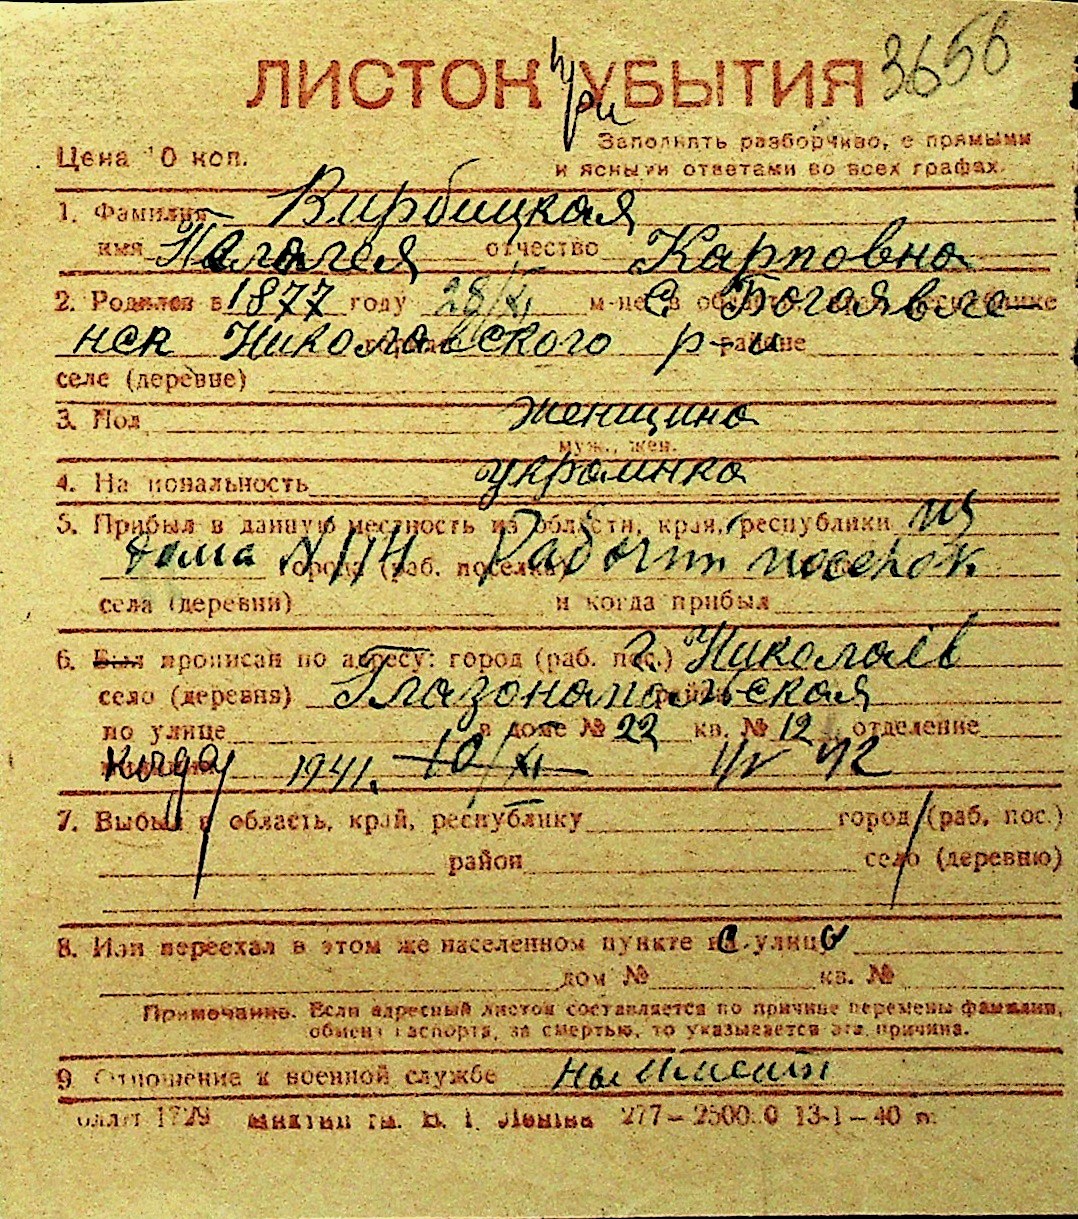 3656
ЛИСТОК при УБЫТИЯ
Цена 10 коп.
Заполнять разборчиво, с прямыми
и ясными ответами во всех графах.
1. Фамилия Вирбицкая
имя Пелагея отчество Карповна
2. Родился в 1877 году 28/XI м-це в области, крае, республике с Богоявле-
нск Николаевского р-на районе
селе (деревне)
3. Пол женщина
муж., жен.
4. Национальность украинка
5. Прибыл в данную местность из области, края, республики из
дома города (раб. поселка) Рабочий поселок
села (деревни) и когда прибыл
6. Был прописан по адресу: город (раб. пос.) г. Николаев
село (деревня) район
по улице в доме № 22 кв. № 12 отделение
милиции Когда 1941. 10/XI
7. Выбыл в область, край, республику город (раб. пос.)
район село (деревню)
8. Или переехал в этом же населенном пункте с улицы
дом № кв. №
Примечание. Если адресный листок составляется по причине перемены фамилии,
обмен паспорта, за смертью, то указывается эта причина.
9. Отношение к военной службе
1729 им. В. І. Леніна 277—2500.0 13-1—40 п.